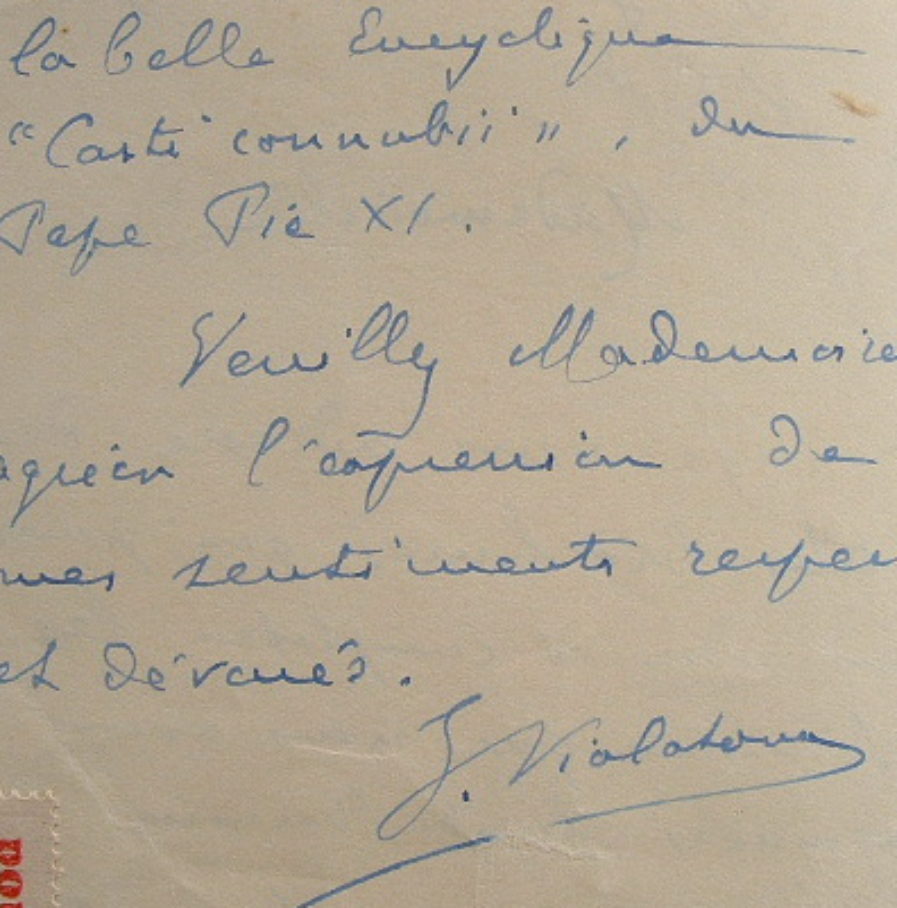 la belle Encyclique
"Casti connubii", du
Pape Pie XI.
Veuillez Mademoise
agréer l'expression de
mes sentiments respec
et dévoués.
J. Vialatoux